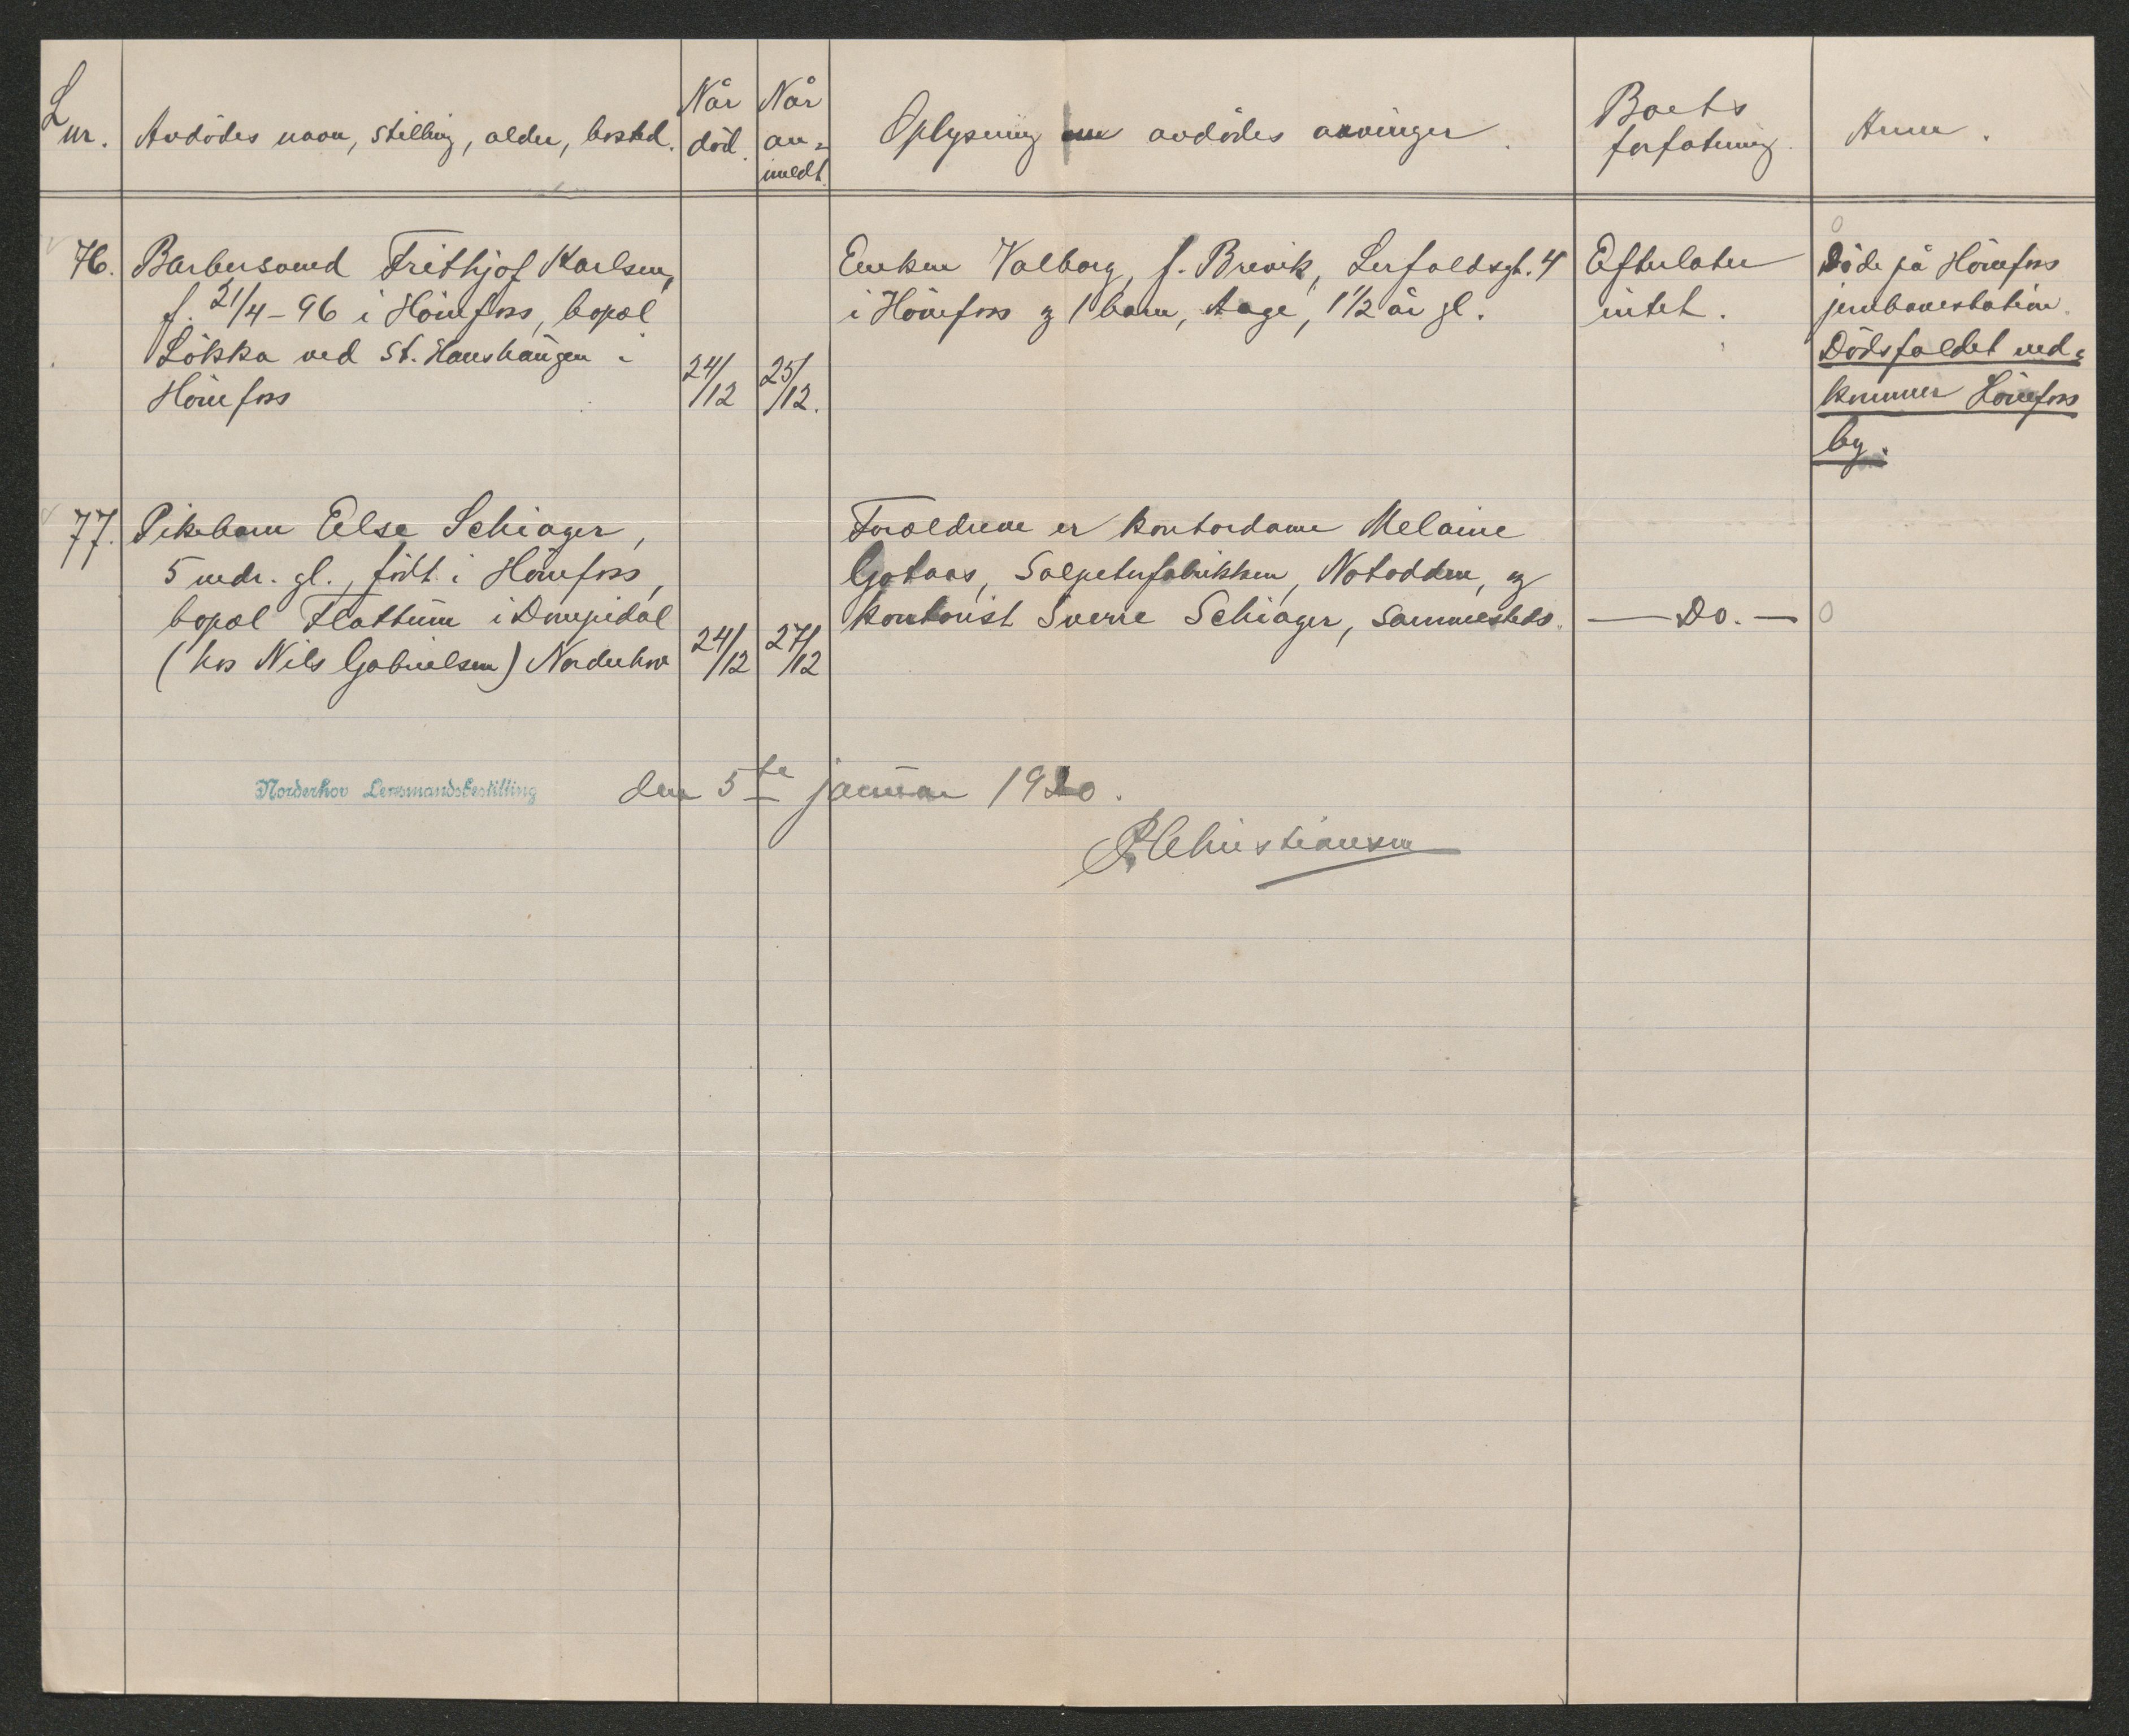 L nr.
Avdödes navn, stilling, alder, bosted.
Når död.
Når an= meldt.
Oplysning om avdödes arvinger.
Boets forfatning.
Anm.
76.
Barbersvend Frithjof Karlsen,
f. 21/4-96 i Hönefoss, bopæl
Lökka ved St. Hanshaugen i
Hönefoss
24/12
25/12.
Enken Valborg, f. Brevik, Lerfaldsgt. 4
i Hönefoss og 1 barn, Aage, 1 1/2 år gl.
Efterlater
intet.
Döde på Hönefoss
jernbanestation.
Dödsfaldet ved=
kommer Hönefoss
by.
77.
Pikebarn Else Schiager,
5 mdr. gl., födt i Hönefoss,
bopæl Flattum i
(hos Nils Gabrielsen) Norderhov
24/12
27/12
Forældrene er kontordame Melaine
Gotaas, Salpeterfabrikken, Notodden, og
kontorist Sverre Schiager, sammesteds.
— Do. —
0
Norderhov Lensmandsbestilling den 5te januar 1920.
Christiansen